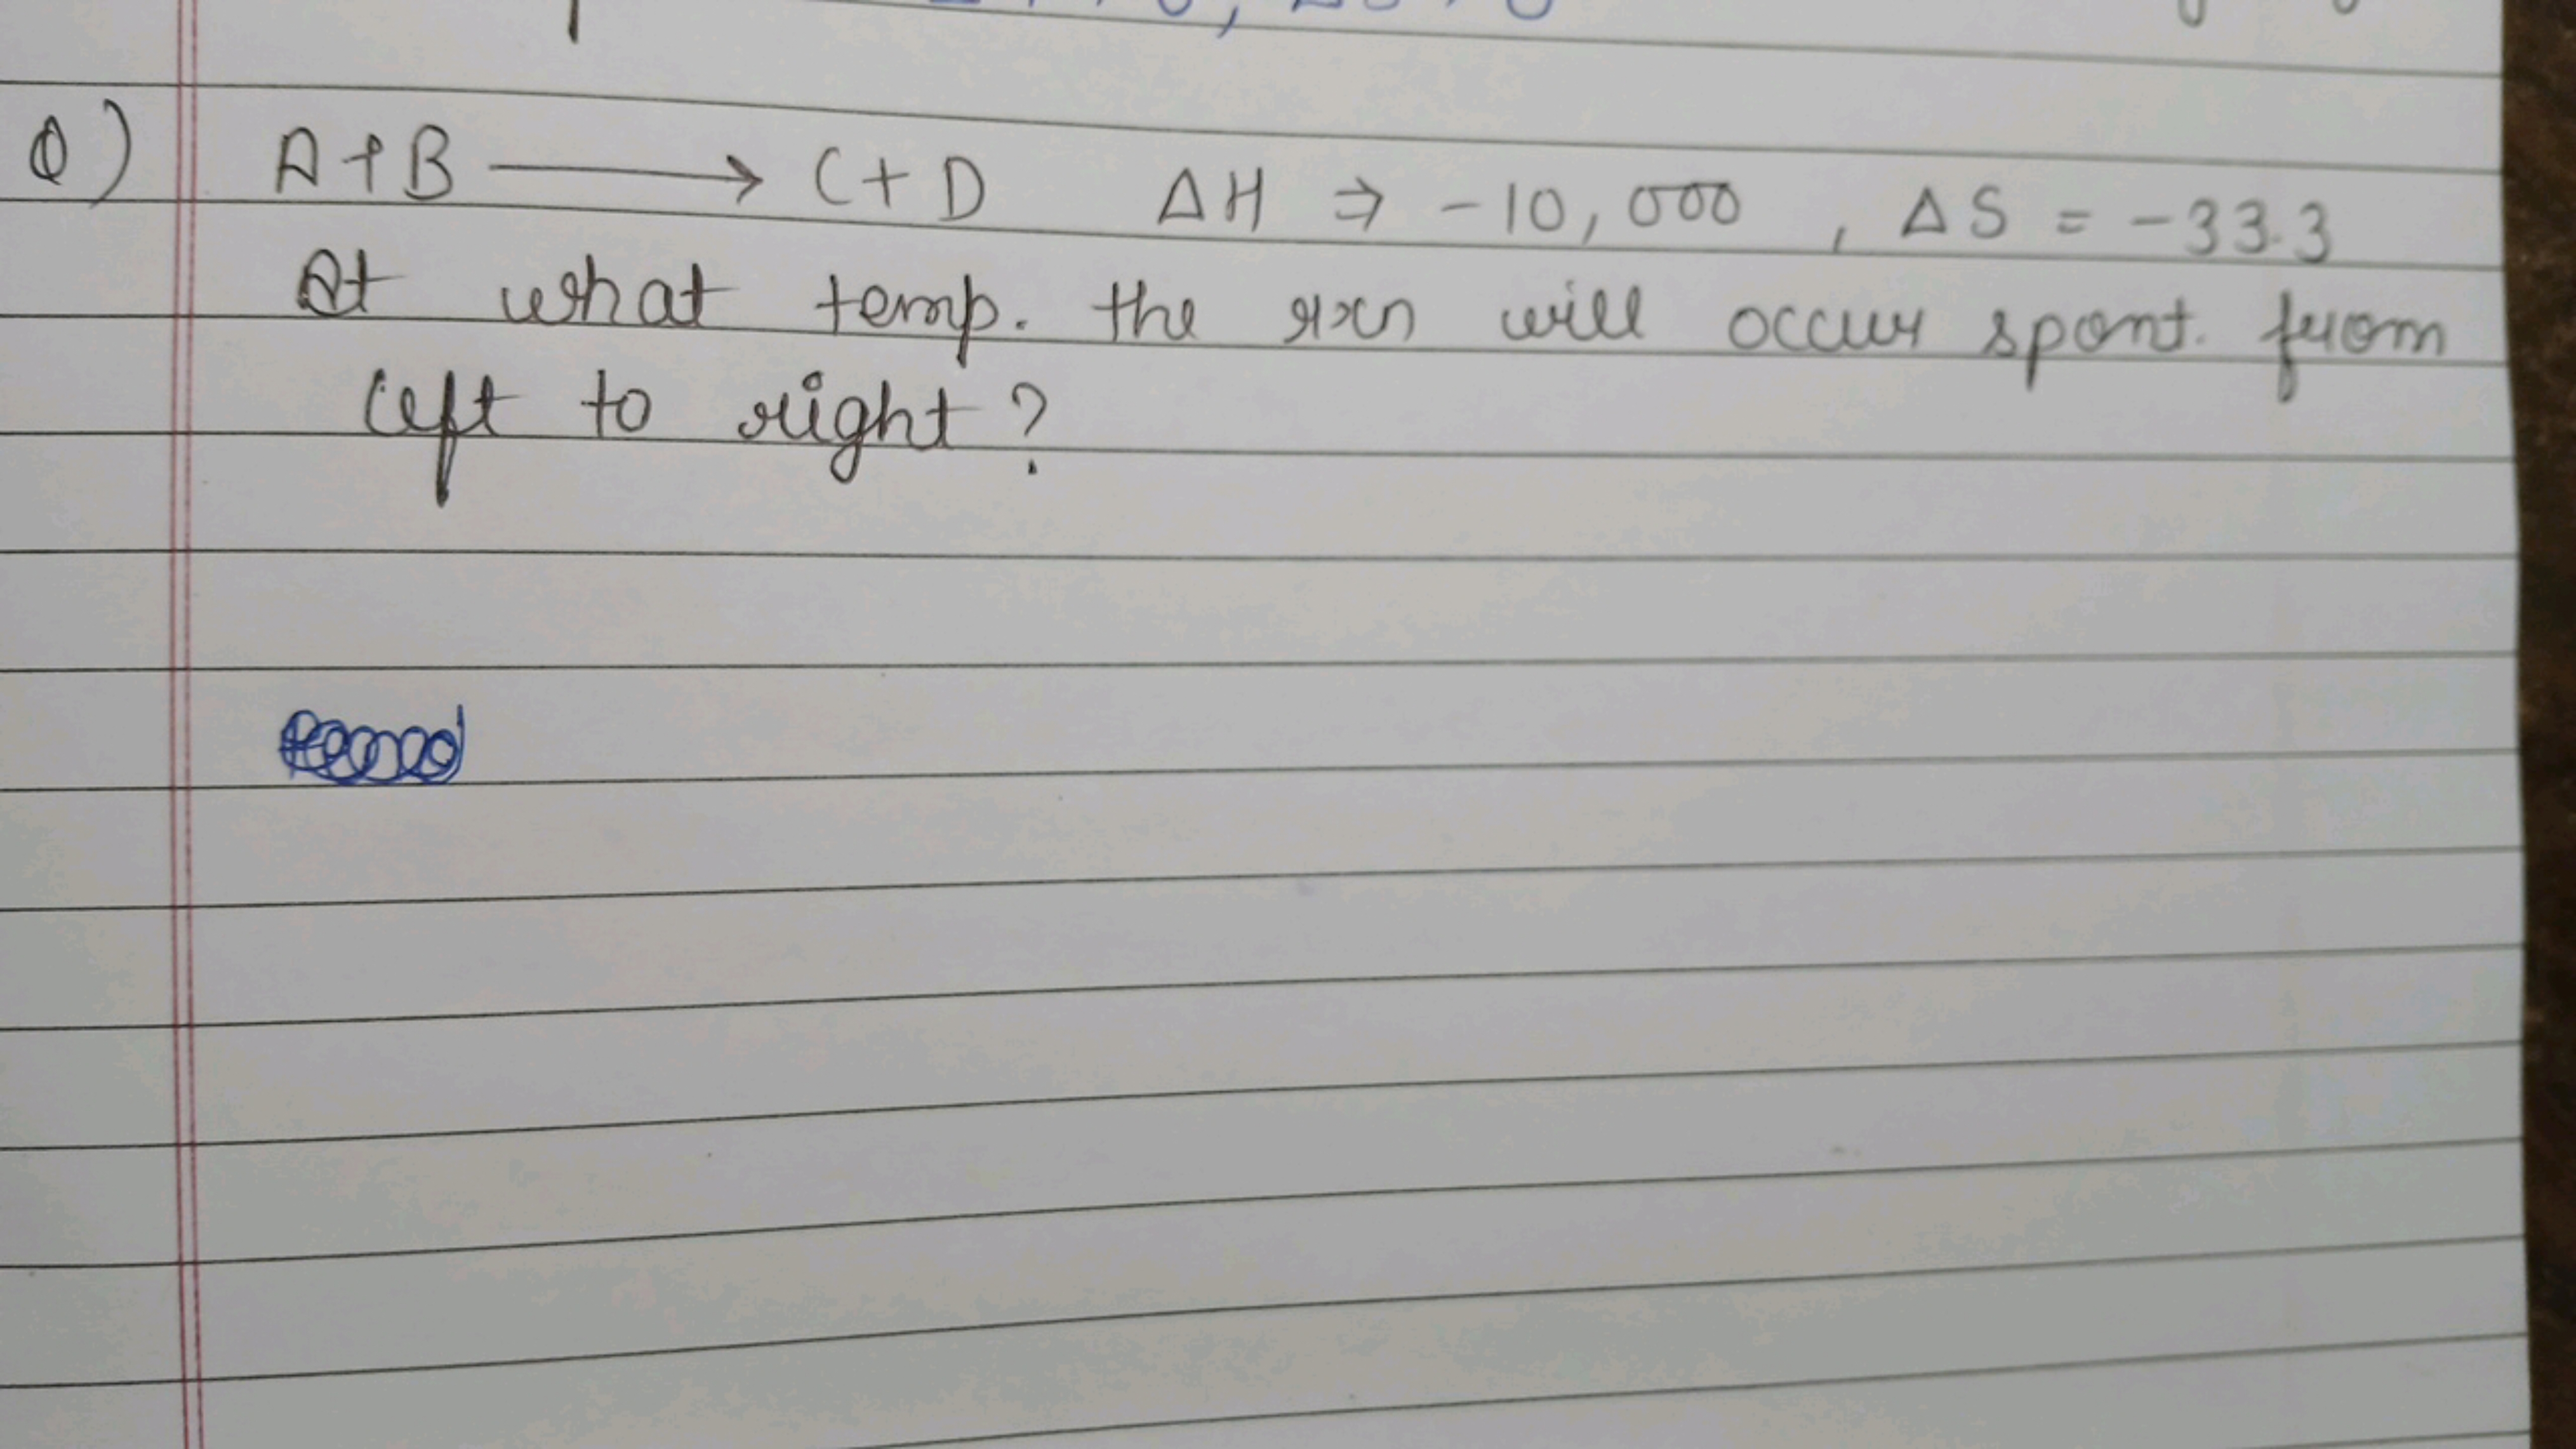 Q) A+B ⟶ C+D ΔH ⇒ -10,000 , ΔS = -33.3
At what temp. the rxn will occur spont. from
left to right?